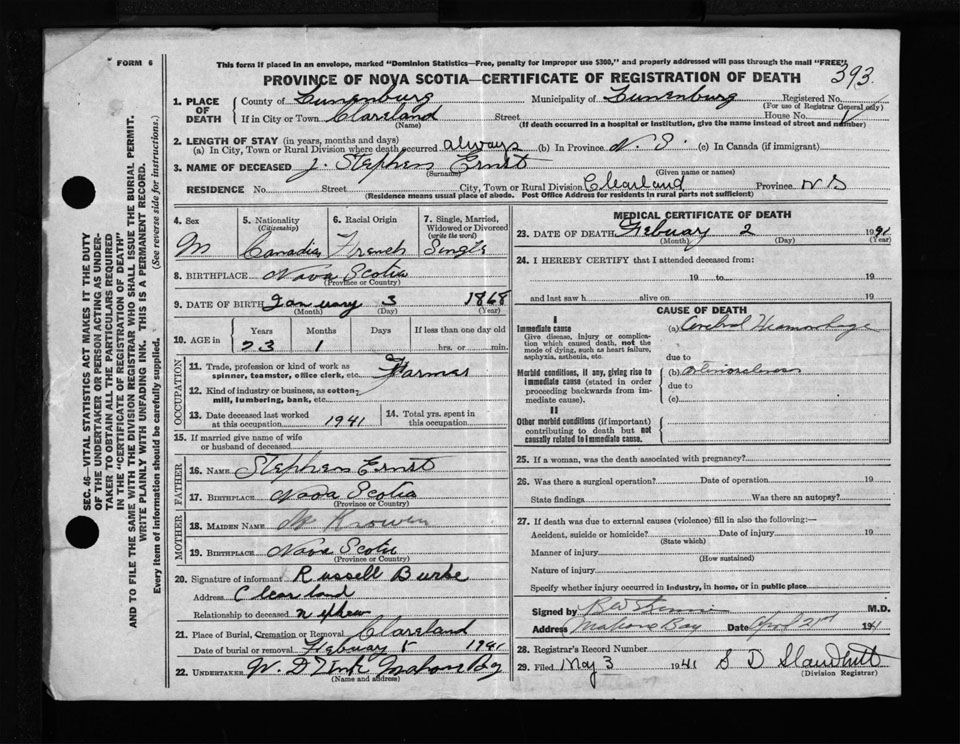 FORM 6
This form if placed in an envelope, marked "Dominion Statistics—Free, penalty for improper use $300," and properly addressed will pass through the mail "FREE"
PROVINCE OF NOVA SCOTIA—CERTIFICATE OF REGISTRATION OF DEATH
393
SEC. 46—VITAL STATISTICS ACT MAKES IT THE DUTY
OF THE UNDERTAKER OR PERSON ACTING AS UNDER-
TAKER TO OBTAIN ALL THE PARTICULARS REQUIRED
IN THE "CERTIFICATE OF REGISTRATION OF DEATH"
AND TO FILE THE SAME WITH THE DIVISION REGISTRAR WHO SHALL ISSUE THE BURIAL PERMIT.
WRITE PLAINLY WITH UNFADING INK. THIS IS A PERMANENT RECORD.
Every item of information should be carefully supplied. (See reverse side for instructions.)
1. PLACE OF DEATH
County of Lunenburg Municipality of Lunenburg Registered No.
(For use of Registrar General only)
If in City or Town Clareland Street House No.
(Name) (If death occurred in a hospital or institution, give the name instead of street and number)
2. LENGTH OF STAY (in years, months and days)
(a) In City, Town or Rural Division where death occurred always (b) In Province N. S. (c) In Canada (if immigrant)
3. NAME OF DECEASED J. Stephen Ernst
(Surname) (Given name or names)
RESIDENCE No. Street City, Town or Rural Division Clearland Province N S
(Residence means usual place of abode. Post Office Address for residents in rural parts not sufficient)
4. Sex M
5. Nationality (Citizenship) Canadian
6. Racial Origin French
7. Single, Married, Widowed or Divorced (write the word) Single
8. BIRTHPLACE Nova Scotia
(Province or Country)
9. DATE OF BIRTH January 3 1868
(Month) (Day) (Year)
10. AGE in
Years Months Days If less than one day old
73 1 hrs. or min.
OCCUPATION
11. Trade, profession or kind of work as spinner, teamster, office clerk, etc. Farmer
12. Kind of industry or business, as cotton-mill, lumbering, bank, etc.
13. Date deceased last worked at this occupation 1941
14. Total yrs. spent in this occupation
15. If married give name of wife or husband of deceased
FATHER
16. NAME Stephen Ernst
17. BIRTHPLACE Nova Scotia
(Province or Country)
MOTHER
18. MAIDEN NAME
19. BIRTHPLACE Nova Scotia
(Province or Country)
20. Signature of informant Russell Burke
Address Clearland
Relationship to deceased nephew
21. Place of Burial, Cremation or Removal Clareland
Date of burial or removal Febuary 1941
22. UNDERTAKER W. D. Mahone Bay
(Name and address)
MEDICAL CERTIFICATE OF DEATH
23. DATE OF DEATH Febuary 2 19
(Month) (Day) (Year)
24. I HEREBY CERTIFY that I attended deceased from:
19 to 19
and last saw h alive on 19
CAUSE OF DEATH
I
Immediate cause
Give disease, injury or complication which caused death, not the mode of dying, such as heart failure, asphyxia, asthenia, etc.
(a) Cerebral Heamorhage
due to
Morbid conditions, if any, giving rise to immediate cause (stated in order preceding backwards from immediate cause).
(b)
due to
(c)
II
Other morbid conditions (if important) contributing to death but not causally related to immediate cause.
25. If a woman, was the death associated with pregnancy?
26. Was there a surgical operation? Date of operation 19
State findings Was there an autopsy?
27. If death was due to external causes (violence) fill in also the following:—
Accident, suicide or homicide? Date of injury 19
(State which)
Manner of injury
(How sustained)
Nature of injury
Specify whether injury occurred in industry, in home, or in public place
Signed by M.D.
Address Mahone Bay Date April 21st 1941
28. Registrar's Record Number
29. Filed May 3 1941 S D
(Division Registrar)